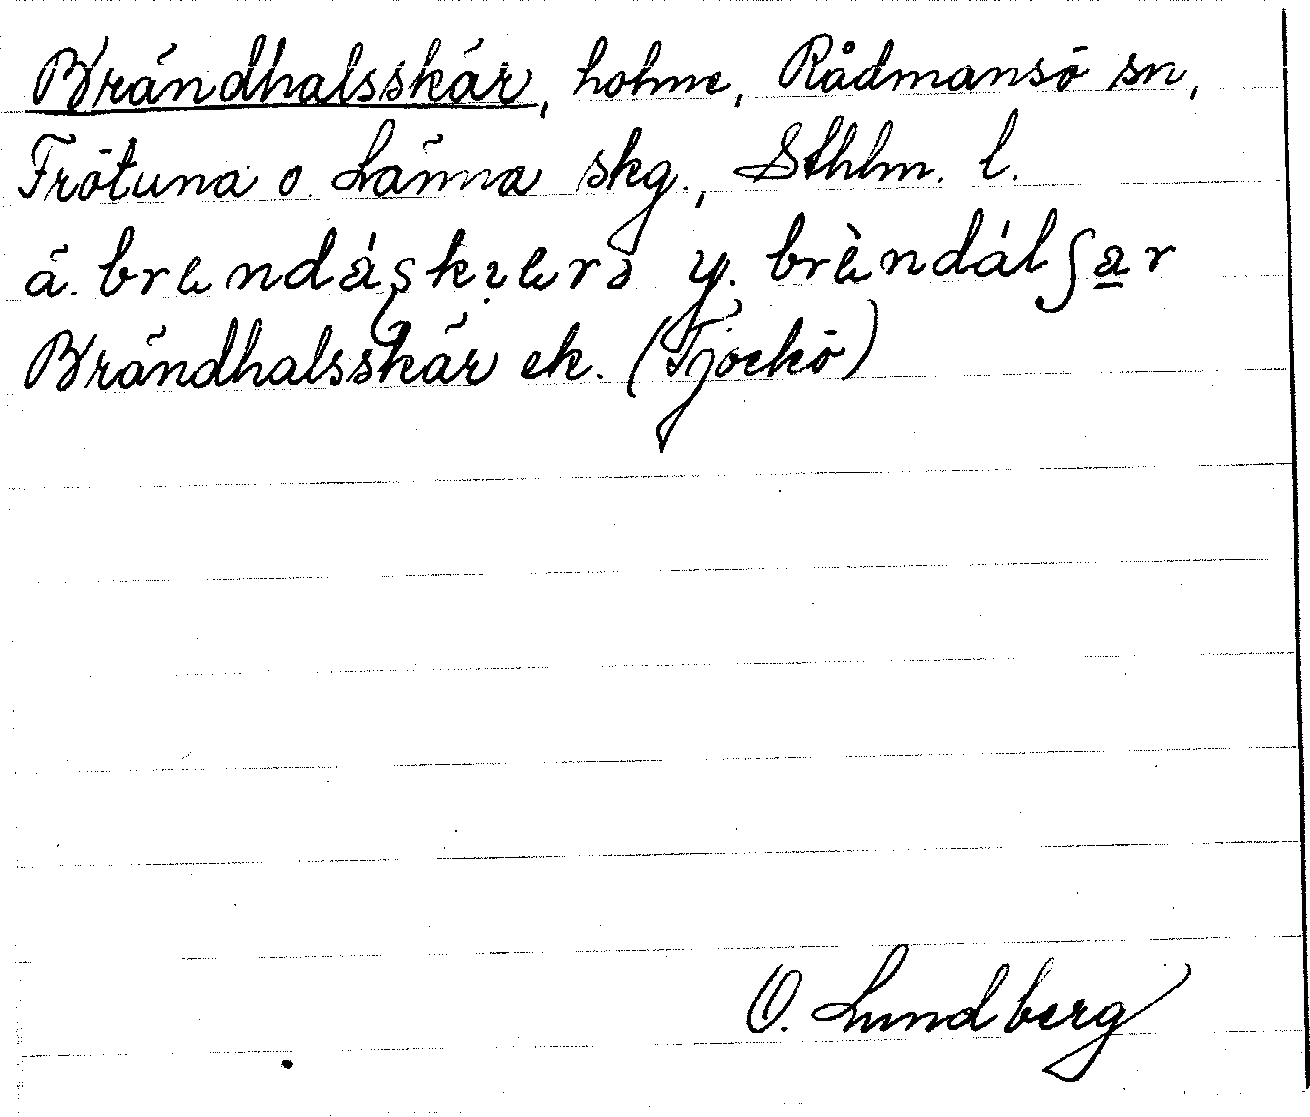 Brändhalsskär, holme, Rådmansö sn,
Frötuna o. Länna skg., Sthlm. l.
ä. brendáskærə y. brèndálʃær
Brändhalsskär ek. (Tjockö)
O. Lundberg